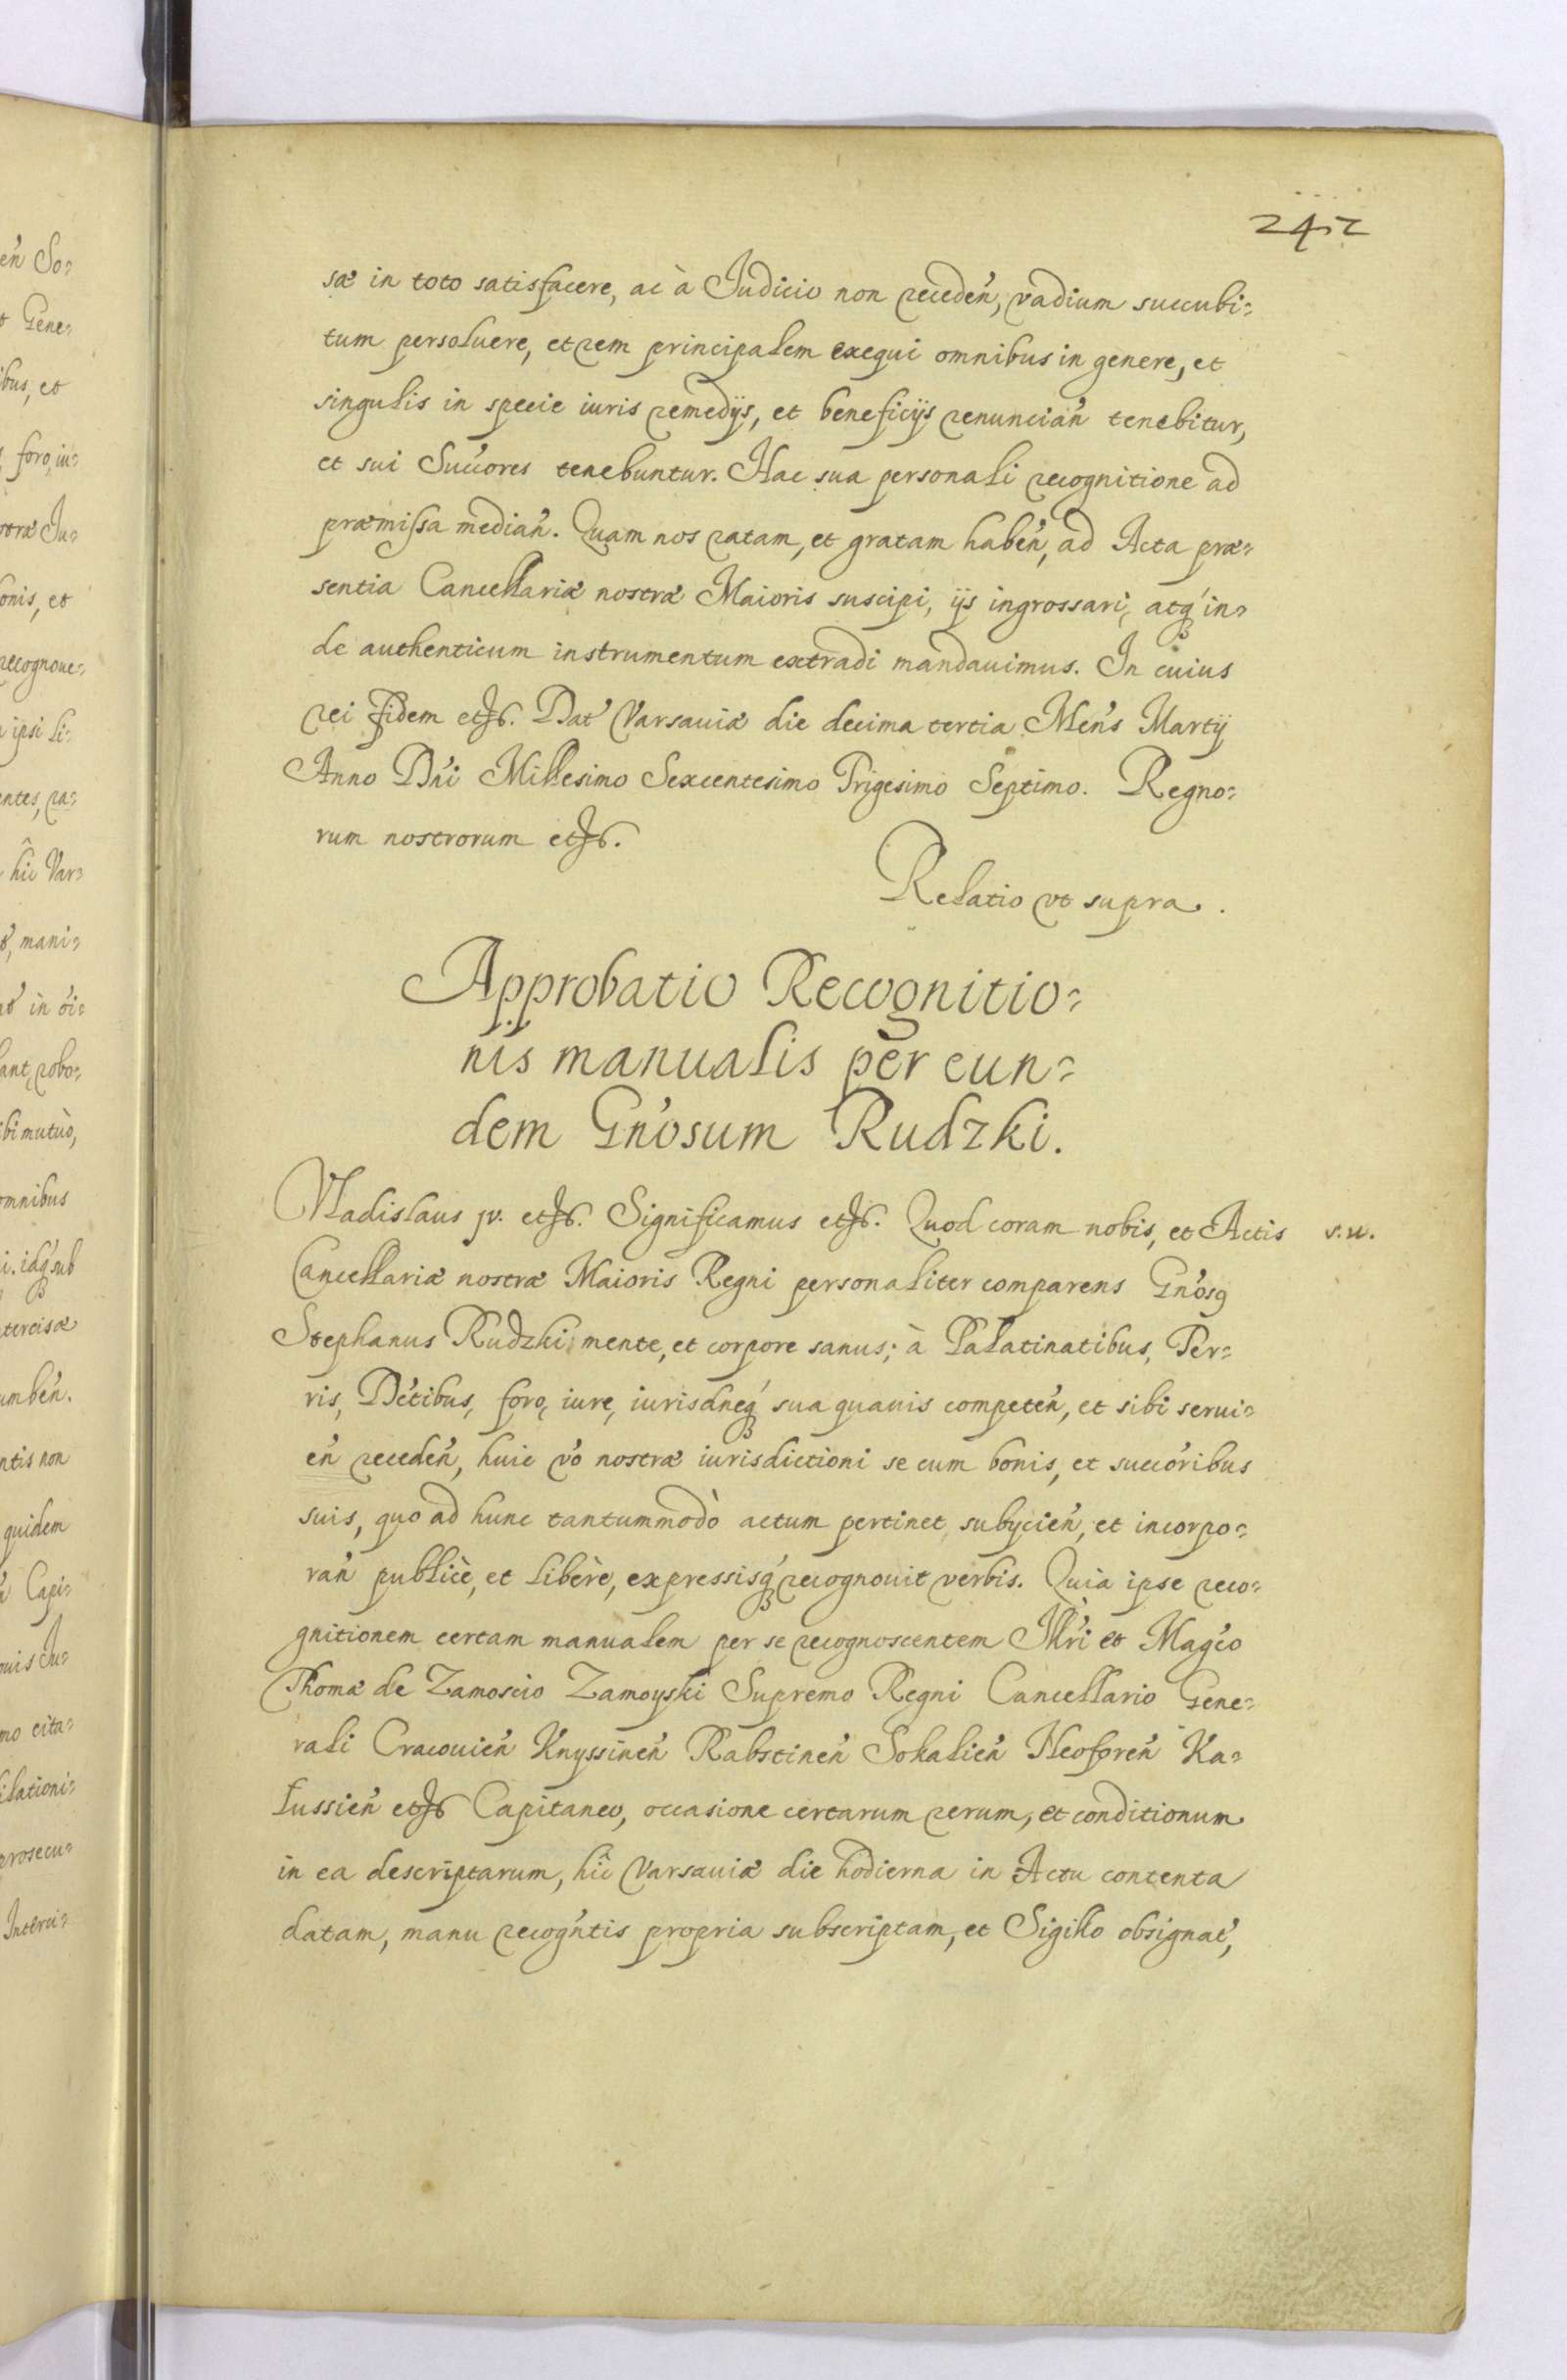 242
sæ in toto satisfacere, ac à Judicio non receden̄, vadium succubi=
tum persoluere, et rem principalem exequi omnibus in genere, et
singulis in specie iuris remedijs, et beneficijs renuncian̄ tenebitur,
et sui Succ̄ores tenebuntur. Hac sua personali recognitione ad
præmissa median̄. Quam nos ratam, et gratam haben̄, ad Acta præ=
sentia Cancellariæ nostræ Maioris suscipi, ijs ingrossari, atq́ in=
de authenticum instrumentum extradi mandauimus. In cuius
rei fidem etc. Dat̄ Varsauiæ die decima tertia Men̄s Martij
Anno Dn̄i Millesimo Sexcentesimo Trigesimo Septimo. Regno=
rum nostrorum etc.
Relatio vt supra.
Approbatio Recognitio=
nis manualis per eun=
dem Gn̄osum Rudzki.
Vladislaus jv. etc. Significamus etc. Quod coram nobis, et Actis
s.u.
Cancellariæ nostræ Maioris Regni personaliter comparens Gn̄osꝯ
Stephanus Rudzki mente, et corpore sanus; à Palatinatibus, Ter=
ris, Dc̄tibus, foro, iure, iurisdneq́ sua quauis competen̄, et sibi serui=
en̄ receden̄, huic v̄o nostræ iurisdictioni se cum bonis, et succ̄oribus
suis, quo ad hunc tantummodò actum pertinet subycien̄, et incorpo=
ran̄ publicè, et liberè, expressisq́ recognouit verbis. Quia ipse reco=
gnitionem certam manualem per se recognoscentem Illr̄i et Magc̄o
Thomæ de Zamoscio Zamoyski Supremo Regni Cancellario Gene=
rali Cracouien̄ Knyssinen̄ Rabstinen̄ Sokalien̄ Neoforen̄ Ka=
lussien̄ etc Capitaneo, occasione certarum rerum, et conditionum
in ea descriptarum, hîc Varsauiæ die hodierna in Actu contenta
datam, manu recogn̄tis propria subscriptam, et Sigillo obsignat̄,